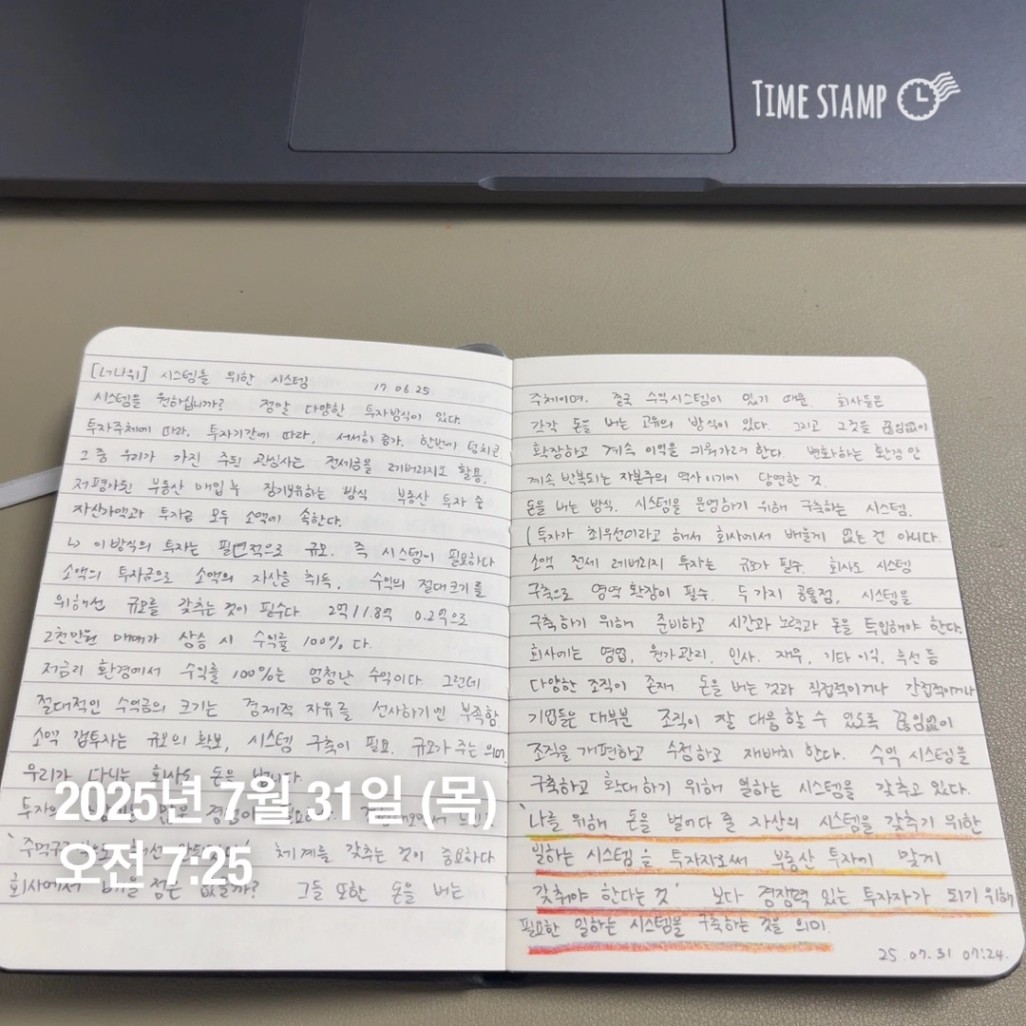 TIME STAMP
[너나위] 시스템을 위한 시스템 17 06 25
시스템을 원하십니까? 정말 다양한 투자방식이 있다.
투자주체에 따라, 투자기간에 따라, 서서히 증가, 한번에
그 중 우리가 가진 주된 관심사는 전세금을 레버리지로 활용,
저평가된 부동산 매입 후 장기보유하는 방식 부동산 투자 중
자산가액과 투자금 모두 소액에 속한다.
↳ 이 방식의 투자는 필연적으로 규모. 즉 시스템이 필요하다
소액의 투자금으로 소액의 자산을 취득, 수익의 절대크기를
위해선 규모를 갖추는 것이 필수다 2억 1.8억 0.2억으로
2천만원 매매가 상승 시 수익률 100%다.
저금리 환경에서 수익률 100%는 엄청난 수익이다 그런데
절대적인 수익금의 크기는 경제적 자유를 선사하기엔 부족함
소액 갭투자는 규모의 확보, 시스템 구축이 필요. 규모가 주는 의미.
우리가 다니는 회사도 돈을
투자의
체계를 갖추는 것이 중요하다
회사에서 배울 점은 없을까? 그들 또한 돈을 버는
주체이며. 결국 수익시스템이 있기 때문. 회사들은
각각 돈을 버는 고유의 방식이 있다. 그리고 그것을 끊임없이
확장하고 계속 이익을 키워가려 한다. 변화하는 환경 안
계속 반복되는 자본주의 역사이기에 당연한 것.
돈을 버는 방식. 시스템을 운영하기 위해 구축하는 시스템.
(투자가 최우선이라고 해서 회사에서 배울게 없는 건 아니다.
소액 전세 레버리지 투자는 규모가 필수. 회사도 시스템
구축으로 영역 확장이 필수. 두 가지 공통점, 시스템을
구축하기 위해 준비하고 시간과 노력과 돈을 투입해야 한다.
회사에는 영업, 원가관리, 인사. 재무, 기타 이익, 등
다양한 조직이 존재 돈을 버는 것과 직접적이거나 간접적이거나
기업들은 대부분 조직이 잘 대응할 수 있도록 끊임없이
조직을 개편하고 수정하고 재배치 한다. 수익 시스템을
구축하고 확대하기 위해 일하는 시스템을 갖추고 있다.
'나를 위해 돈을 벌어다 줄 자산의 시스템을 갖추기 위한
일하는 시스템을 투자자로써 부동산 투자에 맞게
갖춰야 한다는 것' 보다 경쟁력 있는 투자자가 되기 위해
필요한 일하는 시스템을 구축하는 것을 의미.
25.07.31 07:24.
2025년 7월 31일 (목)
오전 7:25